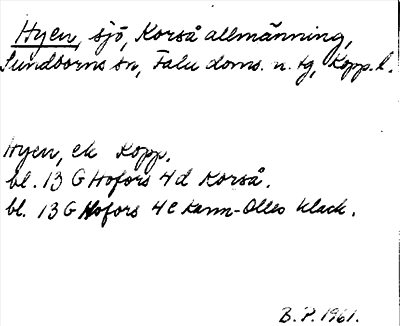 Hyen, sjö, Korså allmänning,
Sundborns sn, Falu doms. n. tg, Kopp. l.
Hyen, ek Kopp.
bl. 13 G Hofors 4d Korså.
bl. 13 G Hofors 4c Karm-Olles klack.
B. P. 1961.